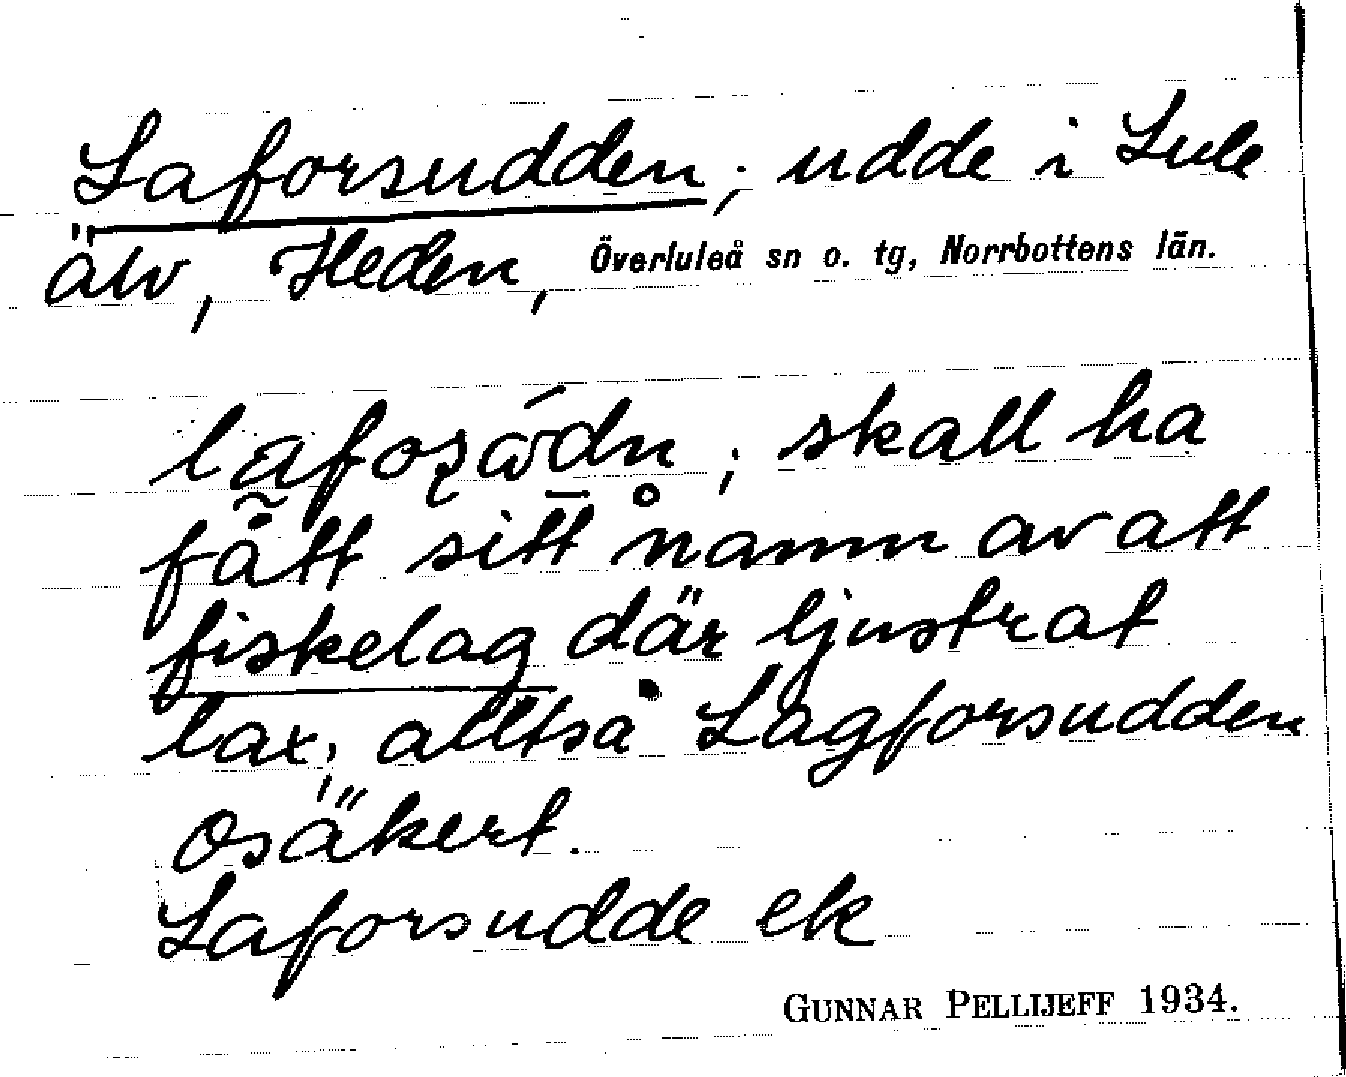 Laforsudden; udde i Lule
älv, Heden, Överluleå sn o. tg, Norrbottens län.
; skall ha
fått sitt namn av att
fiskelag där ljustrat
lax; alltså Lagforsudden
osäkert.
Laforsudde ek
GUNNAR PELLIJEFF 1934.